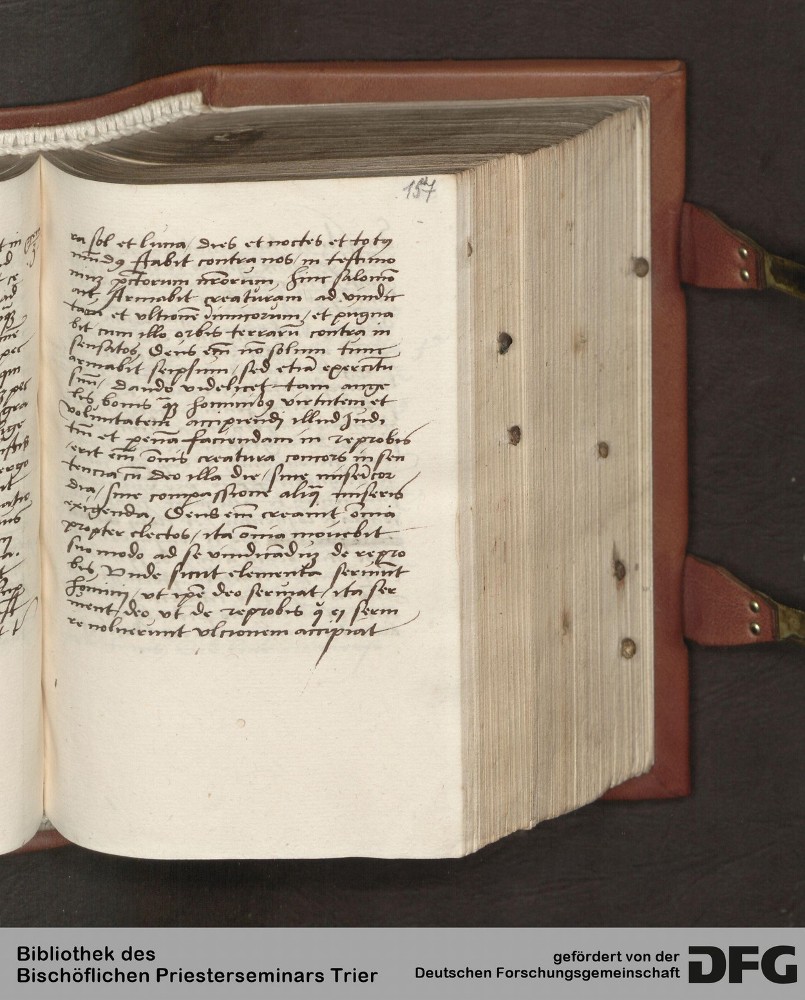 157
ra sol et luna / dies et noctes et totq
mūdq stabit contra nos / in testimo
niuz pctorum nrorum, hinc salomō
ait Armabit creaturam ad vindic
tam et ultionē inimicorum / et pugna
bit cum illo orbis terrarū contra in
sensatos, Deus em̄ nō solum tunc
armabit seipsum / sed etiā exercitū
suū / dando videlicet tam ange
lis bonis qz hominibq virtutem et
voluntatem accipiendi illud Judi
tiū et penam faciendam in reprobis
/ erit em̄ om̄is creatura concors in sen
tencia cū deo illa die / sine misericor
dia / sine compassione aliq miseris
exigenda, Deus em̄ creauit om̄ia
propter electos / ita om̄ia mouebit
suo modo ad se vindicādūz de repro
bis Unde sicut elementa seruiūt
homini / ut ipse deo seruiat / ita ser
uient deo ut de reprobis q̄ ei serui
re noluerunt ulcionem accipiat
Bibliothek des
Bischöflichen Priesterseminars Trier
gefördert von der
Deutschen Forschungsgemeinschaft
DFG